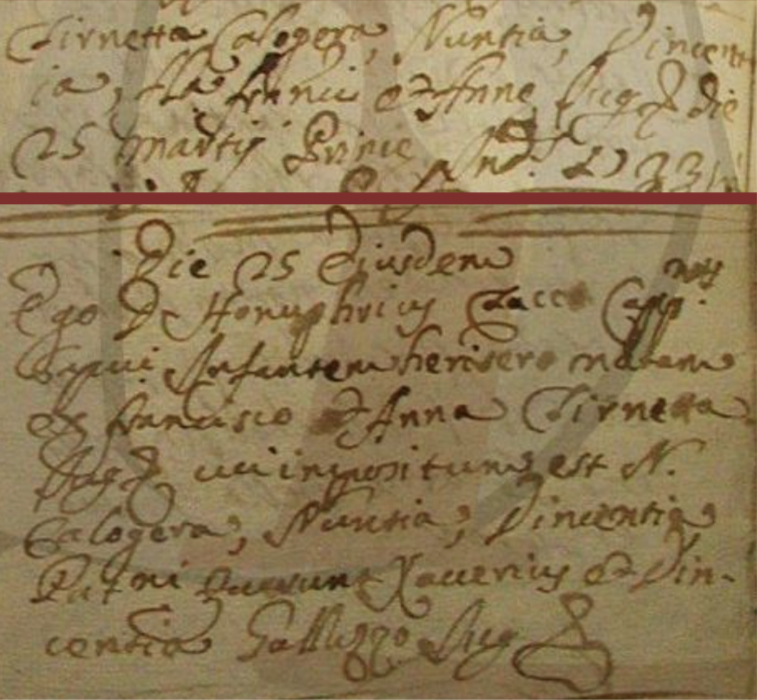 Cirnetta Calogera, Nuntia, Vincent
ia, fa Francisci et Anne Jug. die
25 martij Prime Ind. 1733
Die 25 Ejusdem
Ego D. Honuphrius Zacco Capp.
Bapt.vi Infantem heri sero natam
ex Francisco et Anna Cirnetta
Jug. cui impositum est N.
Calogera, Nuntia, Vincentia,
Patrini fuerunt Xaverius et Vin-
centia Galluzzo Jug